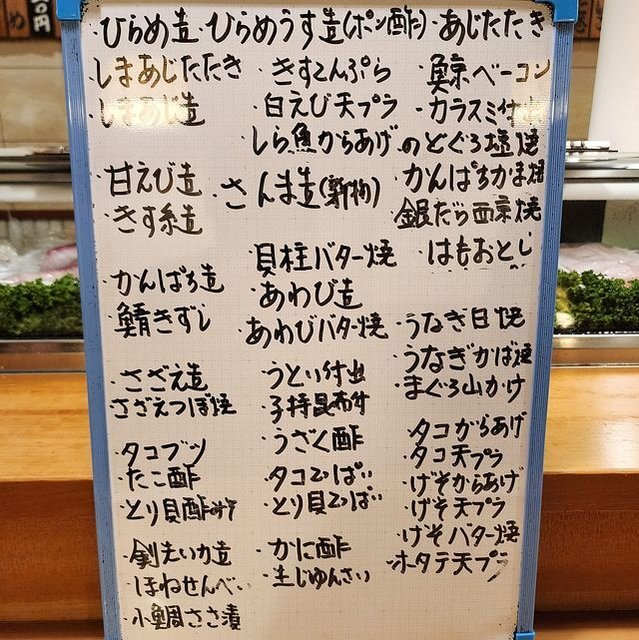 ひらめ造・ひらめうす造(ポン酢)・あじたたき
しまあじたたき
・しまあじ造
・甘えび造
・きす糸造
・かんぱち造
・鯖きずし
・さざえ造
・さざえつぼ焼
・タコブツ
・たこ酢
・とり貝酢
・剣先いか造
・ほねせんべい
・小鯛ささ漬
・きす天ぷら
・白えび天プラ
・しら魚からあげ
・さんま造(新物)
・貝柱バター焼
・あわび造
・あわびバター焼
・子持昆布付
・うざく酢
・タコてっぱい
・とり貝てっぱい
・かに酢
・生じゅんさい
・鯨ベーコン
・カラスミ付出
・のどぐろ塩焼
・かんぱちかま焼
・銀だら西京焼
・はもおとし
・うなぎ白焼
・うなぎかば焼
・まぐろ山かけ
・タコからあげ
・タコ天プラ
・げそからあげ
・げそ天プラ
・げそバター焼
・ホタテ天プラ
円